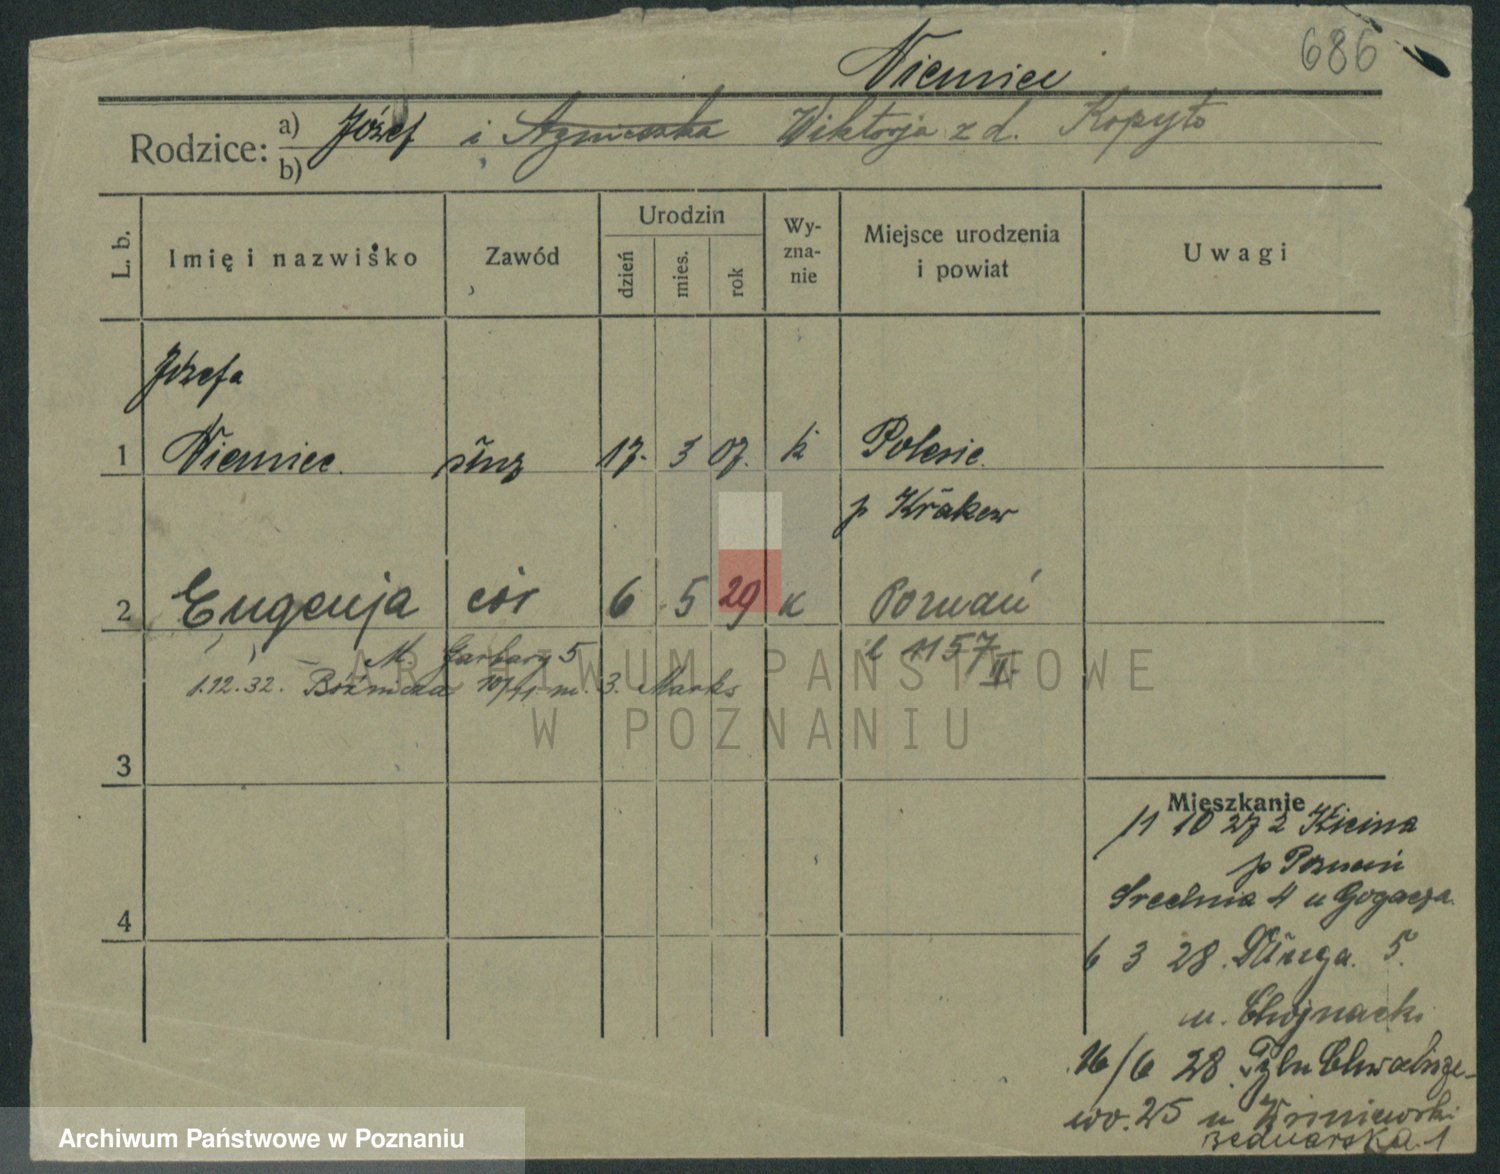 Niemiec
686
Rodzice: a) Józef i Agnieszka Wiktorja z d. Kopyto
b)
L. b.
Imię i nazwisko
Zawód
Urodzin
dzień
mies.
rok
Wy-
zna-
nie
Miejsce urodzenia
i powiat
Uwagi
Józefa
1 Niemiec służ 17. 3 07. k Polesie
p Kraków
2 Eugenja cór 6 5 29 k Poznań
M. Garbary 5 1157/II.
1.12.32. Bóżnicza 10/11 m. 3. Marks
ARCHIWUM PAŃSTWOWE
W POZNANIU
3
4
Mieszkanie
11 10 27 z Kicina
p Poznań
Srednia 4 u Gogacza.
6 3 28. Długa. 5.
u. Chojnacki
16/6 28. Tyln Chwalisze-
wo. 25 u Wiśniewski
Bednarska. 1
Archiwum Państwowe w Poznaniu